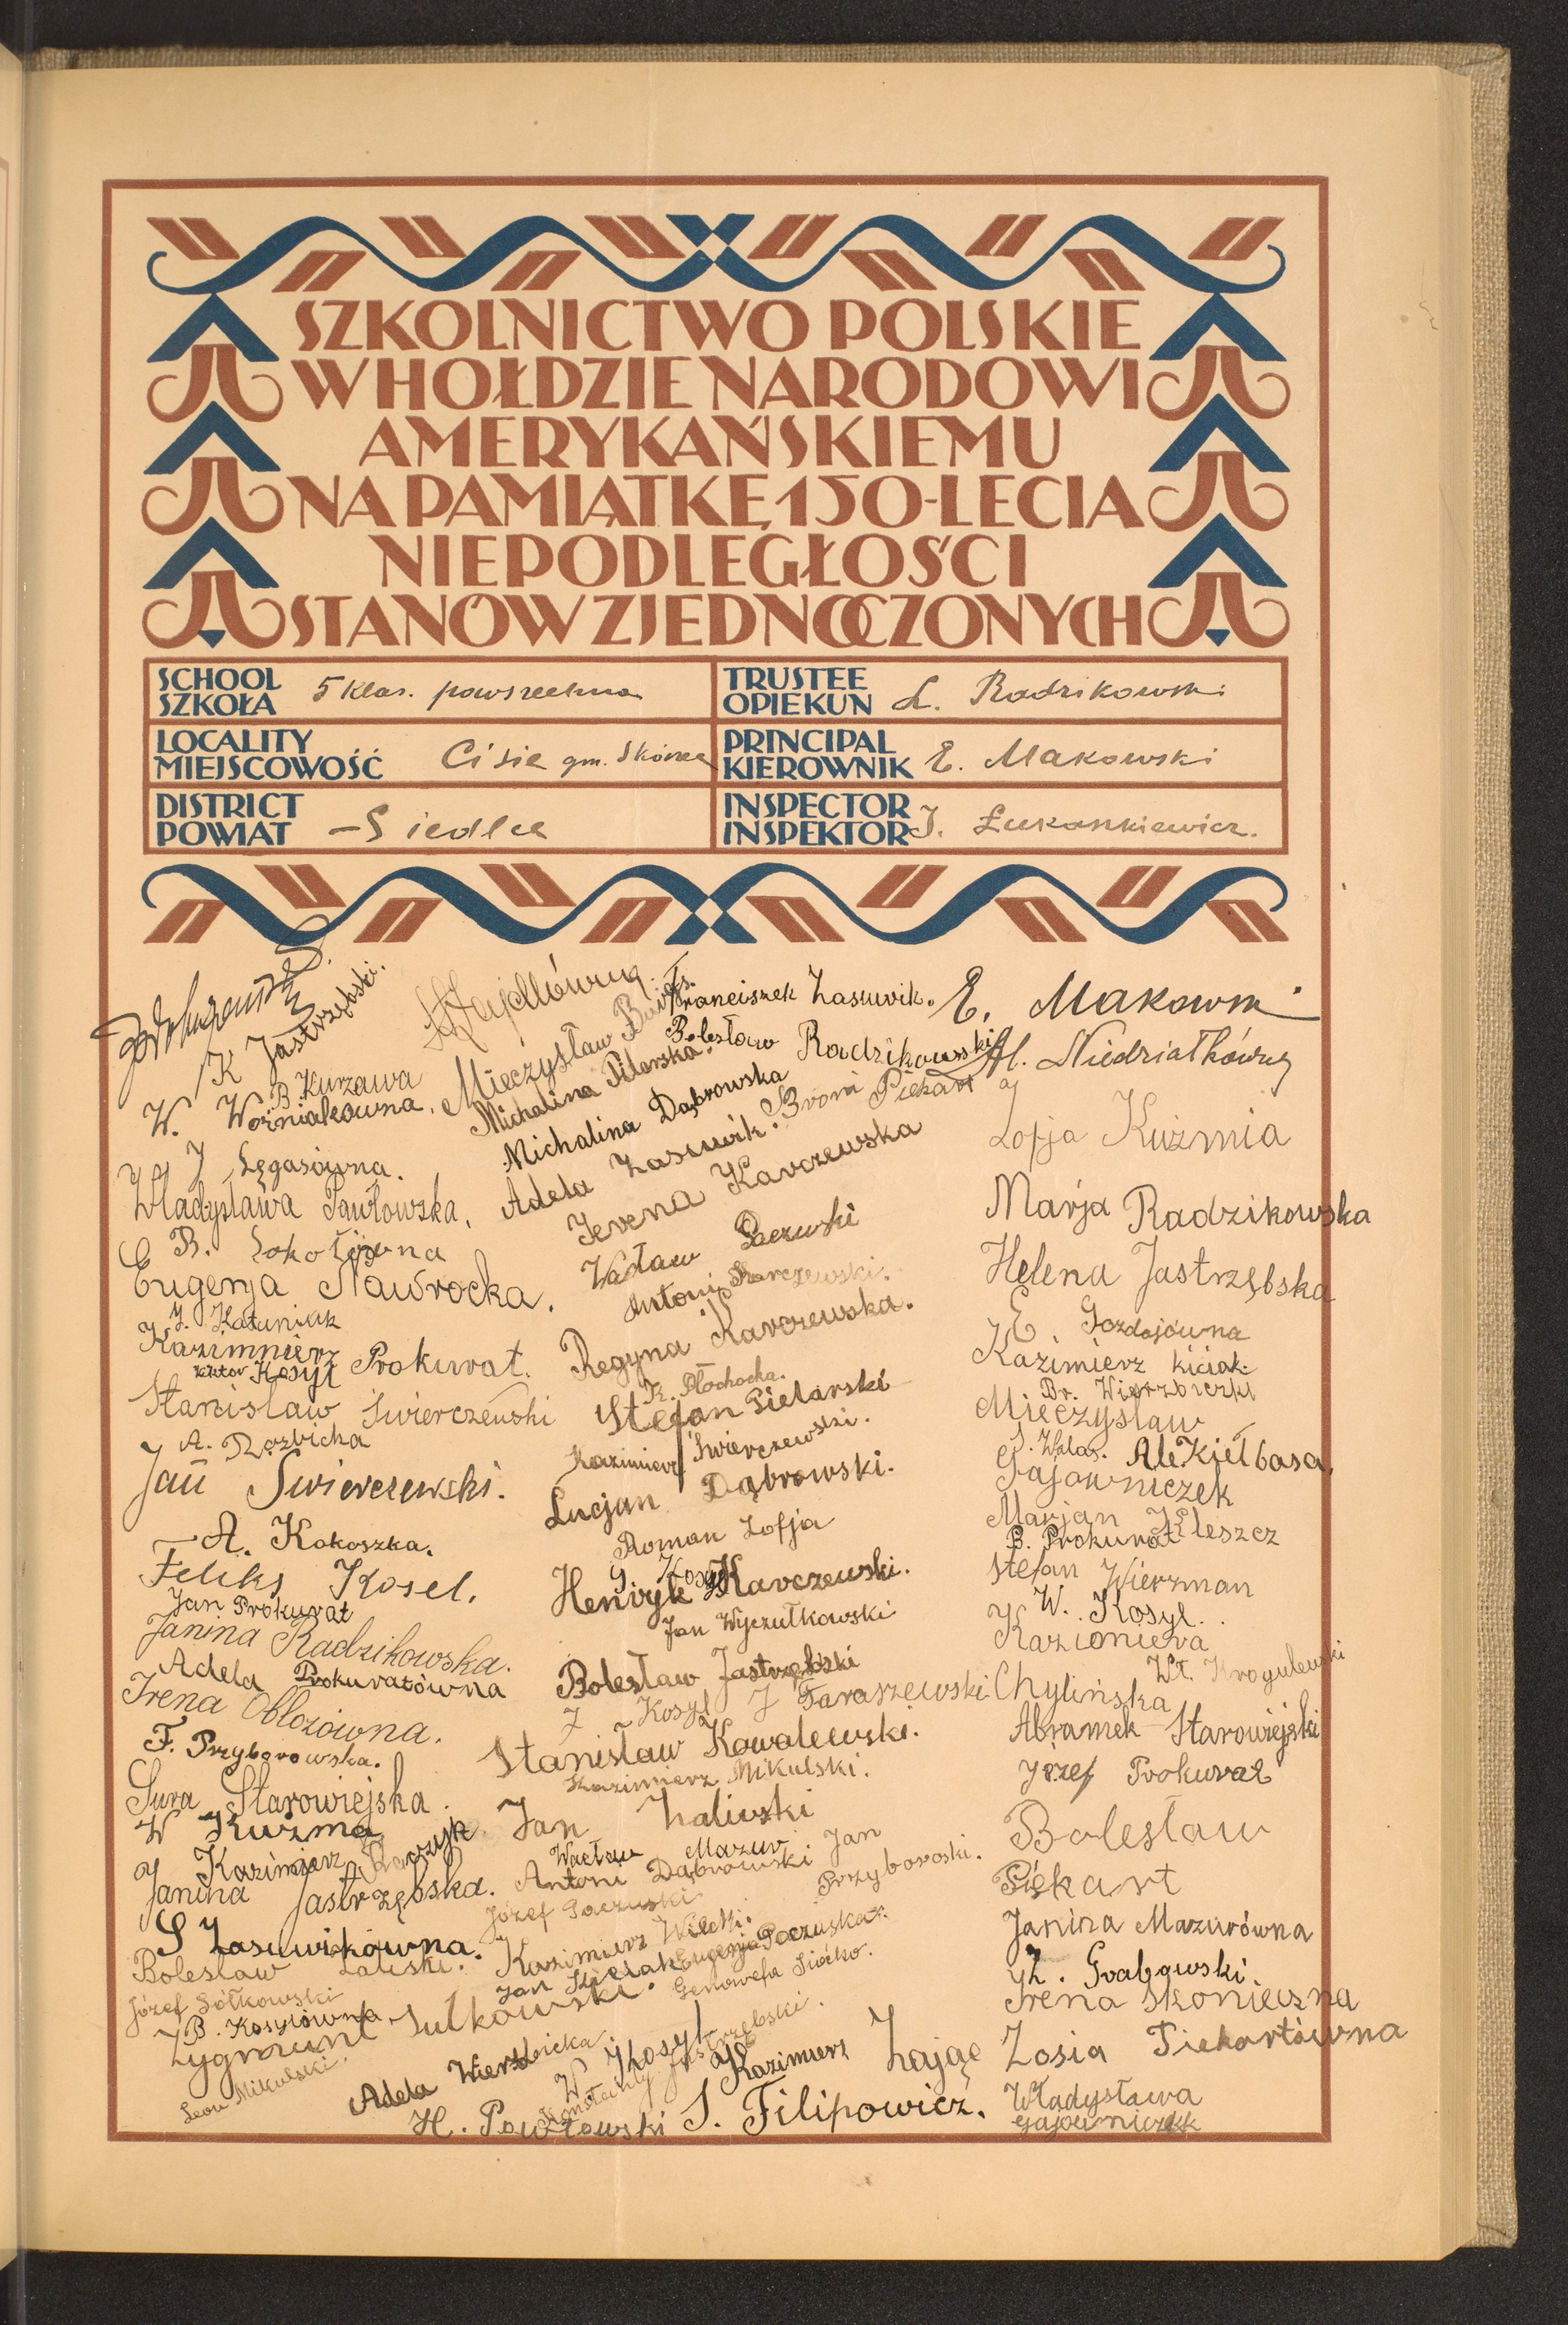 SZKOLNICTWO POLSKIE
W HOŁDZIE NARODOWI
AMERYKAŃSKIEMU
NA PAMIĄTKĘ 150-LECIA
NIEPODLEGŁOŚCI
STANÓW ZJEDNOCZONYCH
SCHOOL
SZKOŁA 5 klas. powszechna
TRUSTEE
OPIEKUN L. Radzikowski
LOCALITY
MIEJSCOWOŚĆ Cisie gm. Skórzec
PRINCIPAL
KIEROWNIK E. Makowski
DISTRICT
POWIAT - Siedlce
INSPECTOR
INSPEKTOR J. Łukankiewicz.
K Jastrzębski.
B. Kurzawa
W. Woźniakówna.
J. Łęgasówna.
Władysława Pawłowska.
B. Sokołówna
Eugenja Nawrocka.
J. Kataniak
Kazimnierz Prokurat.
Wiktor Kosyl
Stanisław Świerczewski
A. Rozbicka
Jan Swierczewski.
A. Kokoszka.
Feliks Kosel.
Jan Prokurat
Janina Radzikowska.
Adela Prokuratówna
Irena Oblozówna.
F. Przyborowska.
Sura Starowiejska.
W Kuźma
Kazimierz Raczyk
Janina Jastrzębska.
S Zasuwikówna.
Bolesław Zaliski.
Józef Sółkowski
B. Kosylówna
Zygmunt Sulkowski.
Leon Mikulski.
Mieczysław
Michalina Pilarska.
Michalina Dąbrowska
Adela Zasuwik.
Franciszek Zasuwik.
Bolesław Radzikowski
Broni Piekart
Irena Karczewska
Wacław Paczuski
Antoni Karczewski.
Regyna Karczewska.
K. Płochocka.
Stefan Pielarski
Kazimierz Świerczewski.
Lucjan Dąbrowski.
Roman Zofja
G. Kosyl
Henryk Karczewski.
Jan Wyczułkowski
Bolesław Jastrzębski
J Kosyl J Taraszewski
Stanisław Kowalewski.
Kazimierz Mikulski.
Jan Zaliwski
Wacław Mazur
Antoni Dąbrowski
Jan Przyboroski.
Józef Paczuski
Kazimierz Wilcki.
Jan Kielak
Eugenja Paczuska.
Genowefa Siożko.
Adela Wierzbicka.
W Kosyl
Konstanty Jastrzębski.
Kazimierz Zając
H. Pawłowski
S. Filipowicz.
E. Makowski
M. Niedziałkówna
Zofja Kuźmia
Marja Radzikowska
Helena Jastrzębska
E. Gozdajówna
Kazimierz Kiciak.
Br. Wierzbicki
Mieczysław
J. Walas. Ale Kiełbasa.
Gajowniczek
Marjan Kleszcz
B. Prokurat
Stefan Wierzman
W. Kosyl.
Kazimiera
Wł. Krogulewski
Chylińska
Abramek Starowiejski
Józef Prokurat
Bolesław
Piekart
Janina Mazurówna
K. Grabowski.
Irena Skonieczna
Zosia Piekartówna
Władysława
Gajowniczek